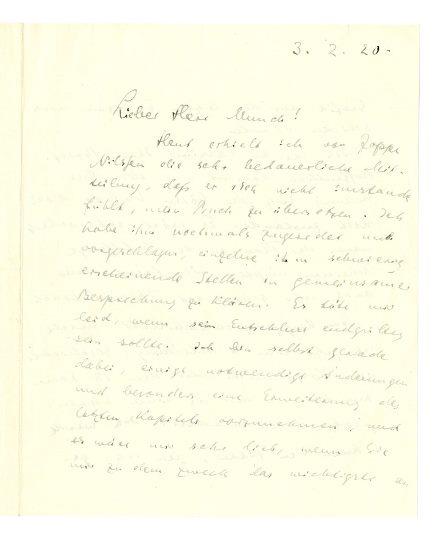 3. 2. 20.
Lieber Herr Munch!
Heut erhielt ich von Jappe
Nilssen die sehr bedauerliche Mit-
teilung, dass er sich nicht imstande
fühlt, mein Buch zu übersetzen. Ich
habe ihm nochmals zugeredet und
vorgeschlagen, einzelne ihm schwierig
erscheinende Stellen in gemeinsamer
Besprechung zu klären. Es täte mir
leid, wenn sein Entschluss endgültig
sein sollte. Ich bin selbst gerade
dabei, einige notwendige Änderungen
und besonders eine Erweiterung des
letzten Kapitels vorzunehmen; und
es wäre mir sehr lieb, wenn Sie
mir zu dem Zweck das wichtigste an